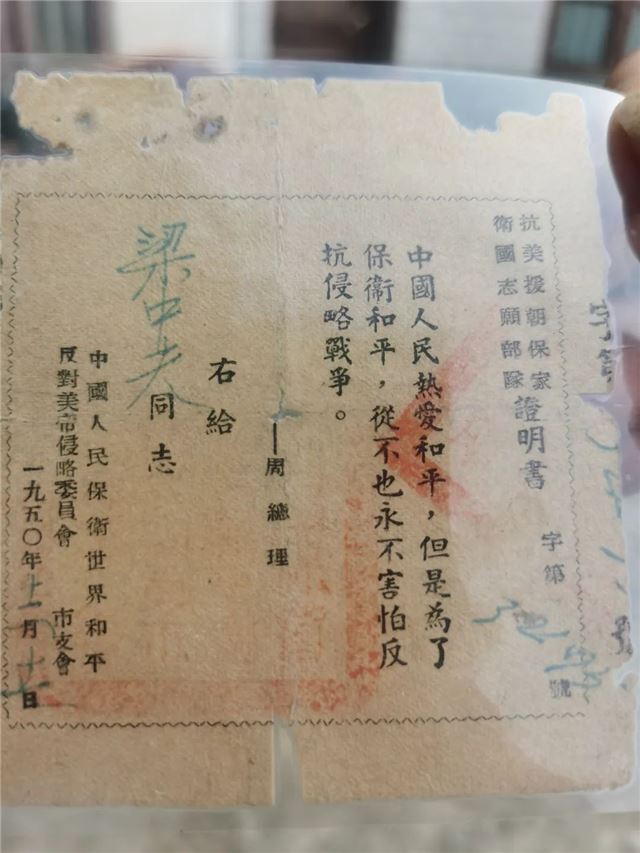 抗美援朝保家
衛國志願部隊
證明書
字第
號
中國人民熱愛和平，但是為了
保衞和平，從不也永不害怕反
抗侵略戰爭。
——周總理
右給
梁中夫同志
中國人民保衛世界和平
反對美帝侵略委員會
市支會
一九五〇年十一月
日
字第
號